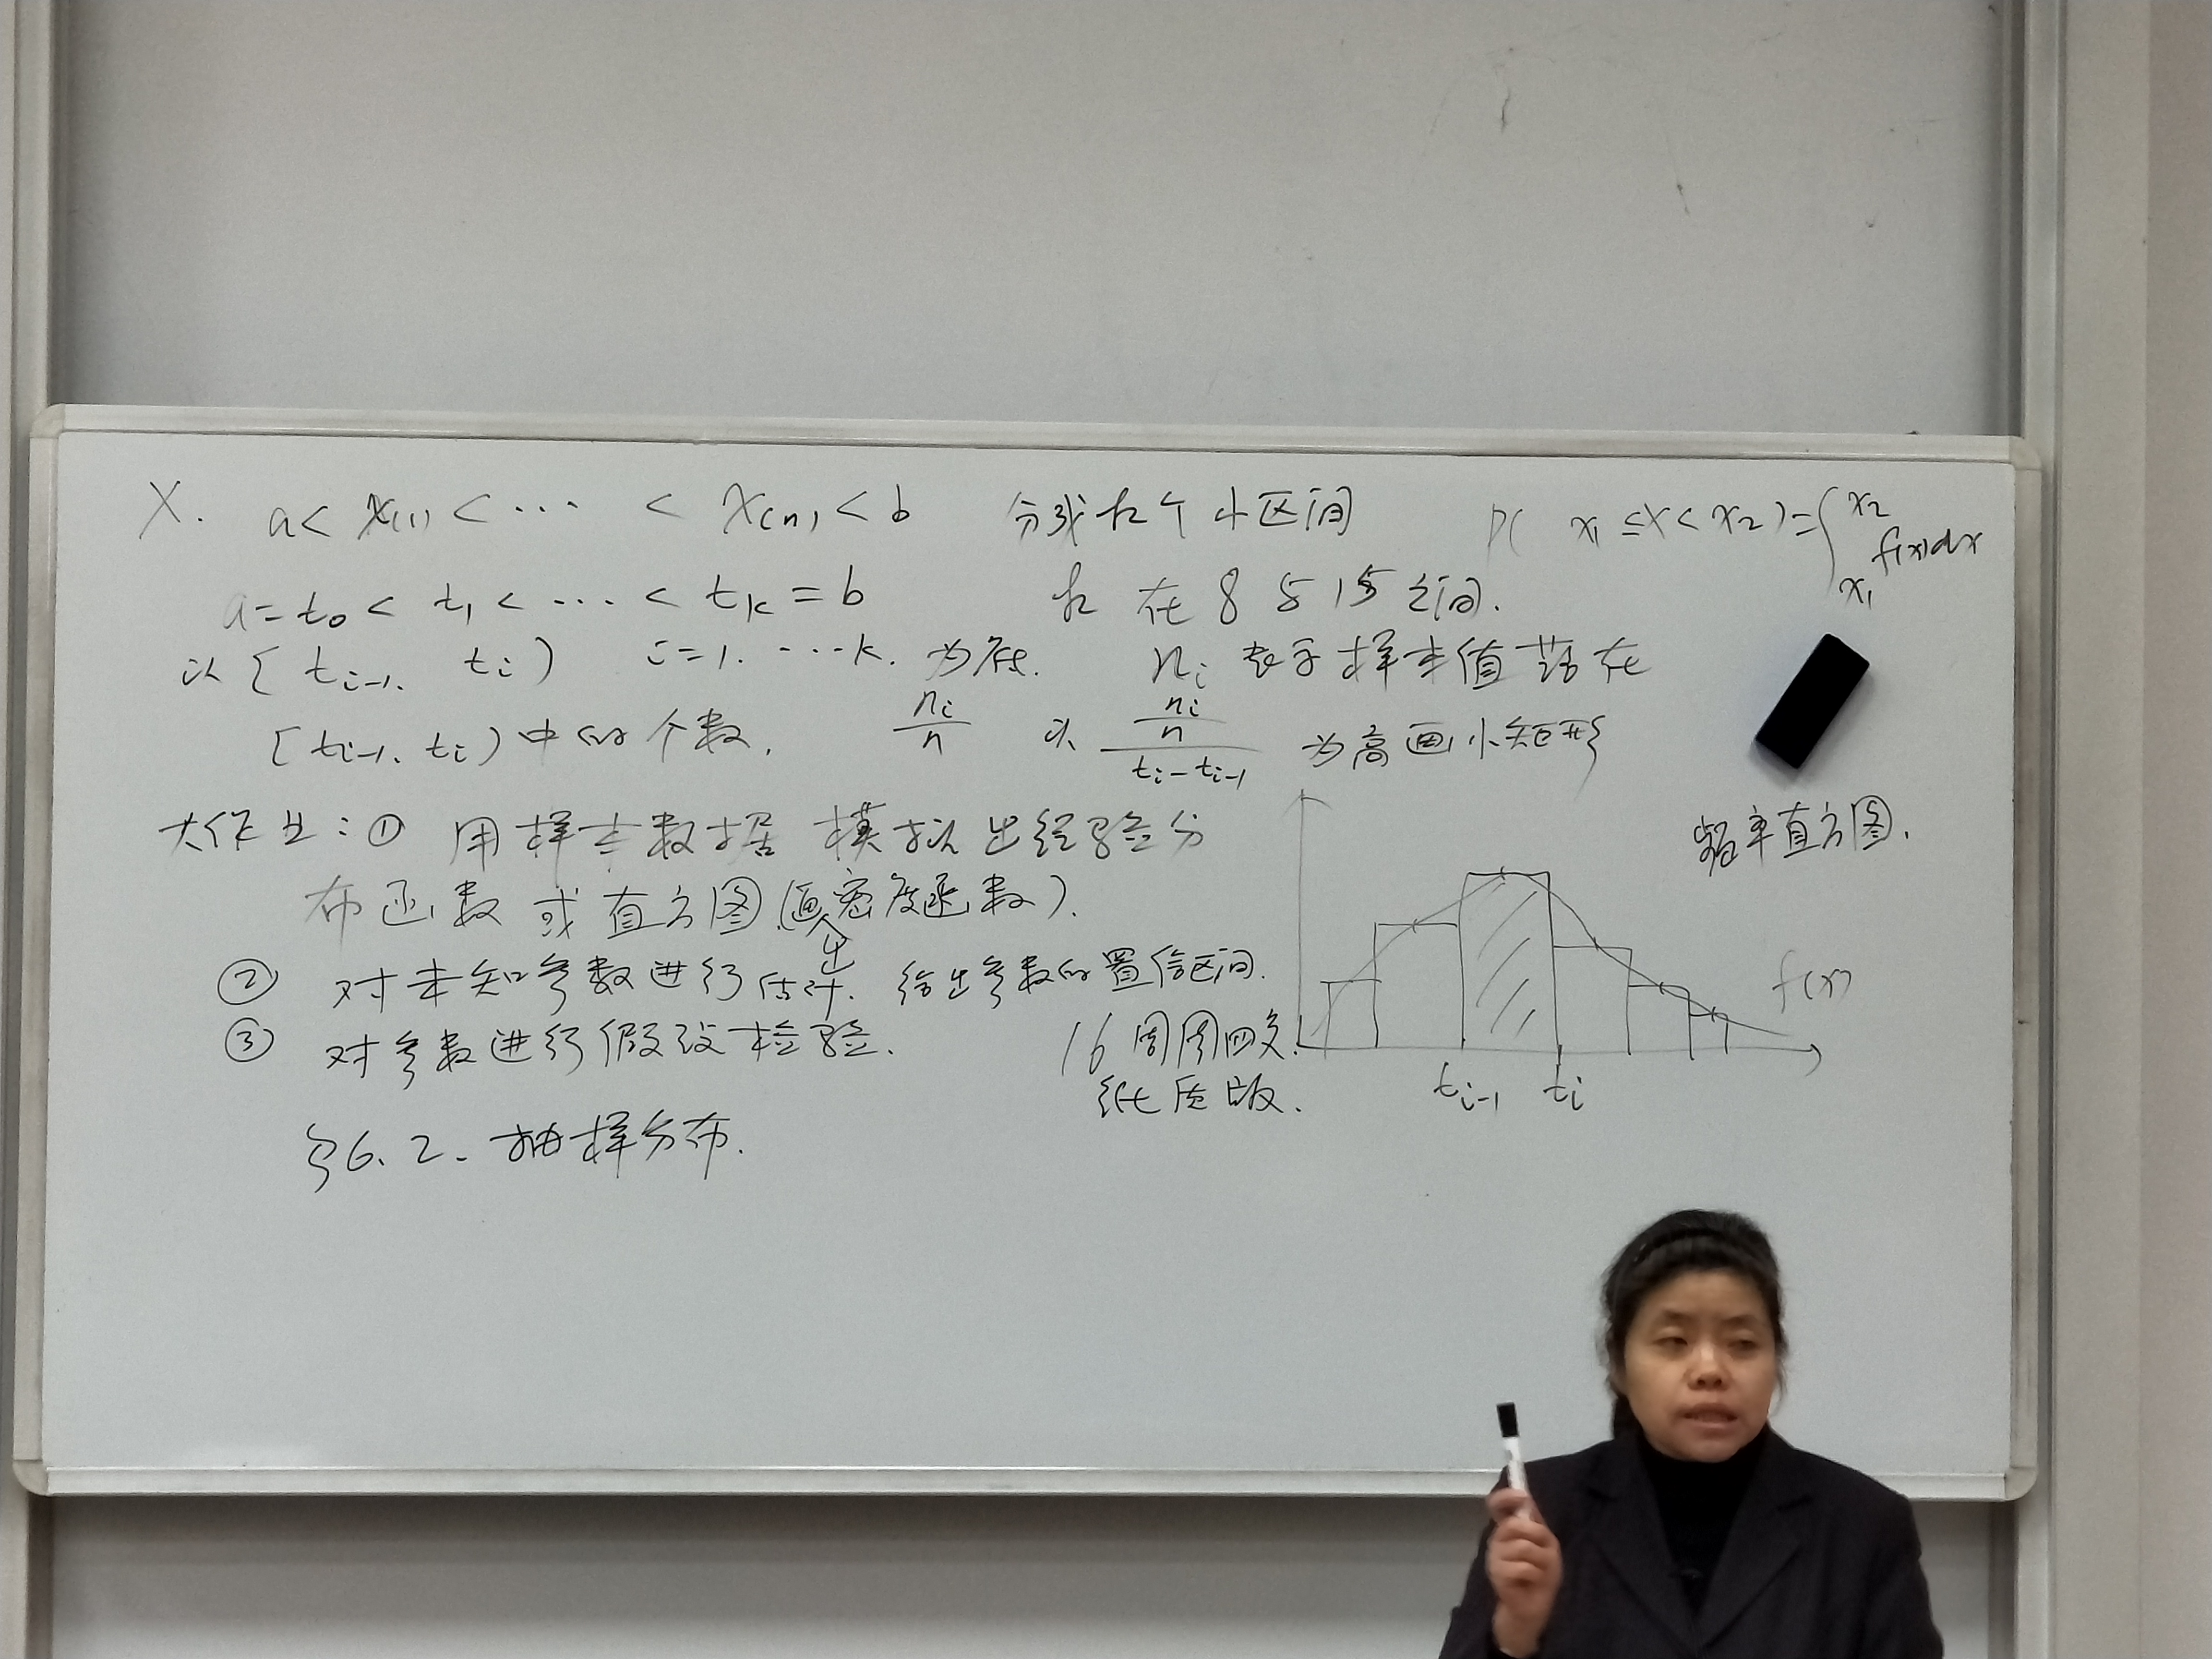 X. a< x₍₁₎ < ⋯ < x₍ₙ₎ < b 分成k个小区间 P( x₁ ≤X< x₂ )=∫_{x₁}^{x₂} f(x)dx
a=t₀ < t₁ < ⋯ < t_k = b k 在 8 与 15 之间.
以 [ t_{i-1}, t_i ) i=1. ⋯k. 为底. n_i 表示样本值落在
[t_{i-1}, t_i) 中的个数. n_i/n 以 (n_i/n)/(t_i-t_{i-1}) 为高画小矩形
大作业: ① 用样本数据 模拟出经验分
布函数 或 直方图 (画出密度函数).
② 对未知参数进行估计. 给出参数的置信区间.
③ 对参数进行假设检验.
16周周四交.
纸质版.
§6.2. 抽样分布.
频率直方图.
f(x)
t_{i-1} t_i